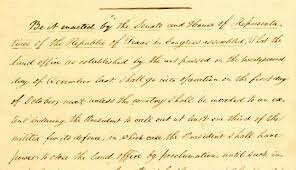 Be it enacted by the Senate and House of Representa-
tives of the Republic of Texas in Congress assembled, That the
land office as established by the act passed on the twenty second
day of December last shall go into operation on the first day
of October next unless the country shall be invaded to an ex-
tent inducing the President to call out at least one third of the
militia for its defence, in which case the President shall have
power to close the land office by proclamation until such in-